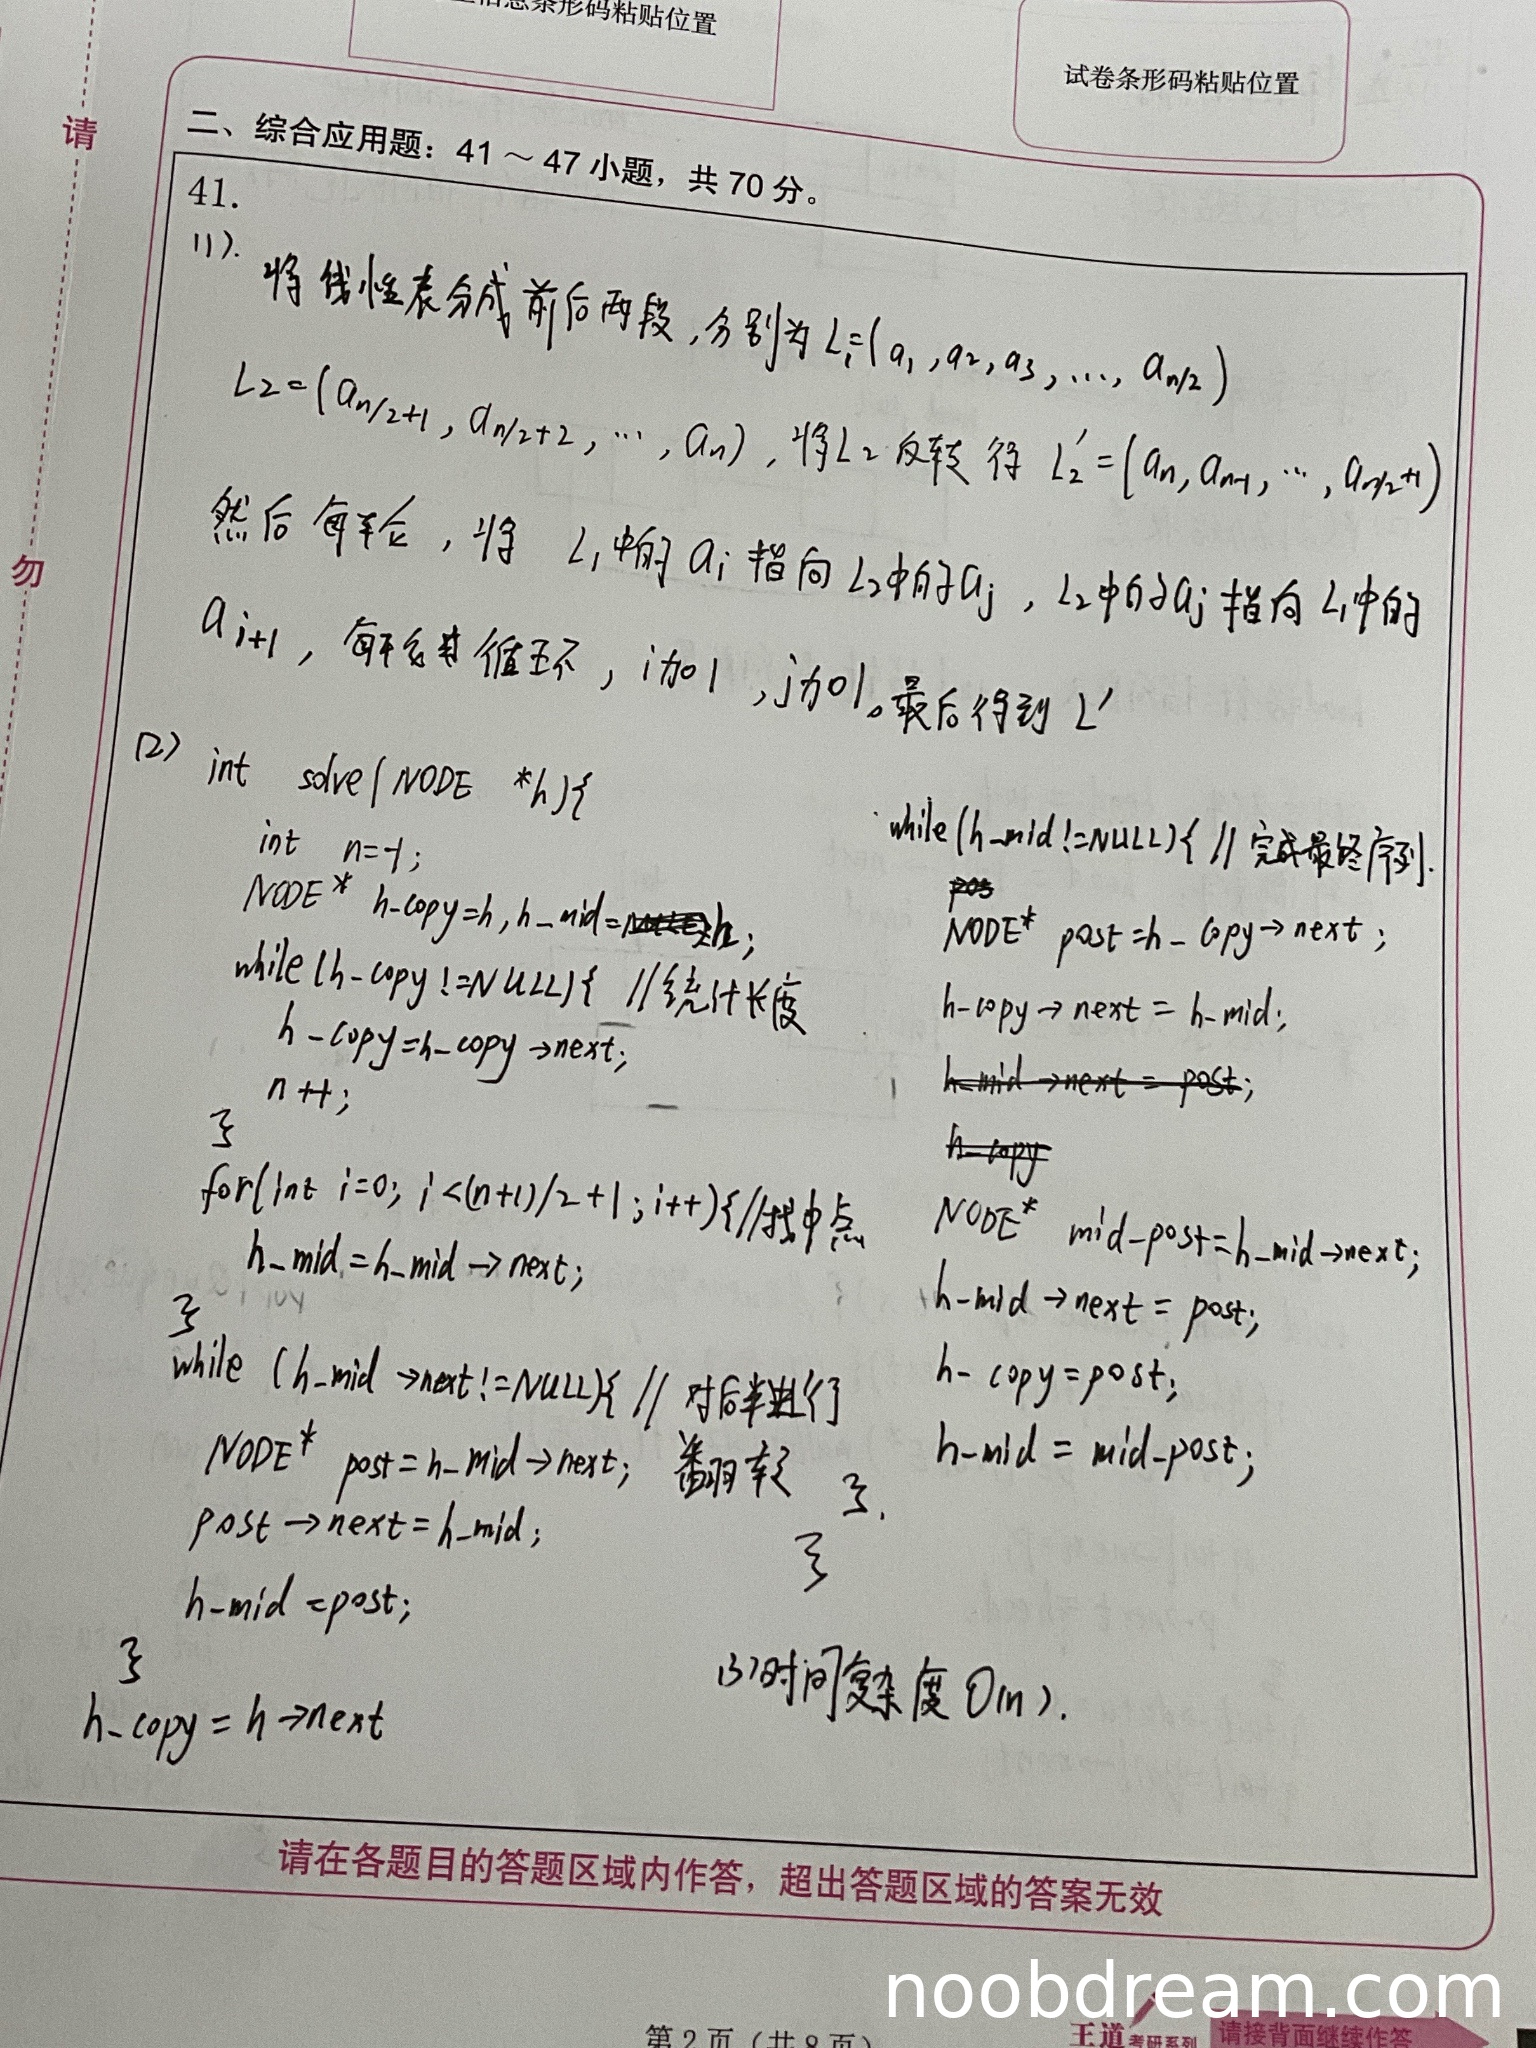 信息条形码粘贴位置
试卷条形码粘贴位置
请
勿
二、综合应用题：41～47小题，共70分。
41.
(1).
将线性表分成前后两段，分别为L1=(a1,a2,a3,…,an/2)
L2=(an/2+1,an/2+2,…,an)，将L2反转得 L2'=(an,an-1,…,an/2+1)
然后每轮，将 L1中的ai指向L2中的aj，L2中的aj指向L1中的
ai+1，每 循环，i加1，j加1。最后得到L'
(2) int solve(NODE *h){
int n=-1;
NODE* h_copy=h,h_mid= h;
while(h_copy!=NULL){ //统计长度
h_copy=h_copy->next;
n++;
}
for(int i=0; i<(n+1)/2+1;i++){//找中点
h_mid=h_mid->next;
}
while (h_mid->next!=NULL){ //对后半进行
NODE* post=h_mid->next; 翻转
post->next=h_mid;
h_mid=post;
}
h_copy=h->next
while(h_mid!=NULL){ //完成最终序列.
pos
NODE* post=h_copy->next;
h_copy->next=h_mid;
h_mid->next=post;
h_copy
NODE* mid_post=h_mid->next;
h_mid->next=post;
h_copy=post;
h_mid=mid_post;
}.
}
(3)时间复杂度O(n).
请在各题目的答题区域内作答，超出答题区域的答案无效
noobdream.com
第2页（共8页）
王道考研系列
请接背面继续作答